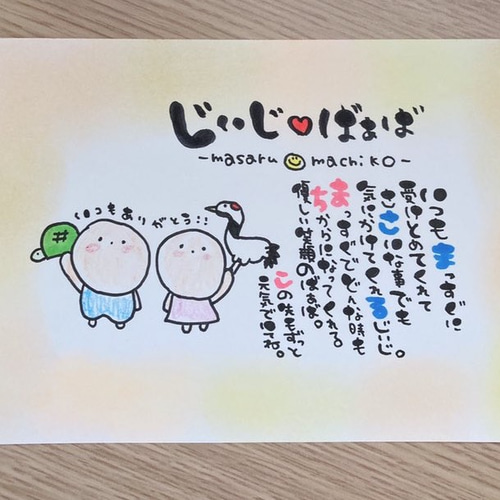 じいじ♥ばぁば
-masaru☺machiko-
いつもありがとう!!
いつもまっすぐに
受けとめてくれて
ささいな事でも
気にかけてくれるじいじ。
まっすぐでどんな時も
ちからになってくれる。
優しい笑顔のばぁば。
この先もずっと
元気でいてね。